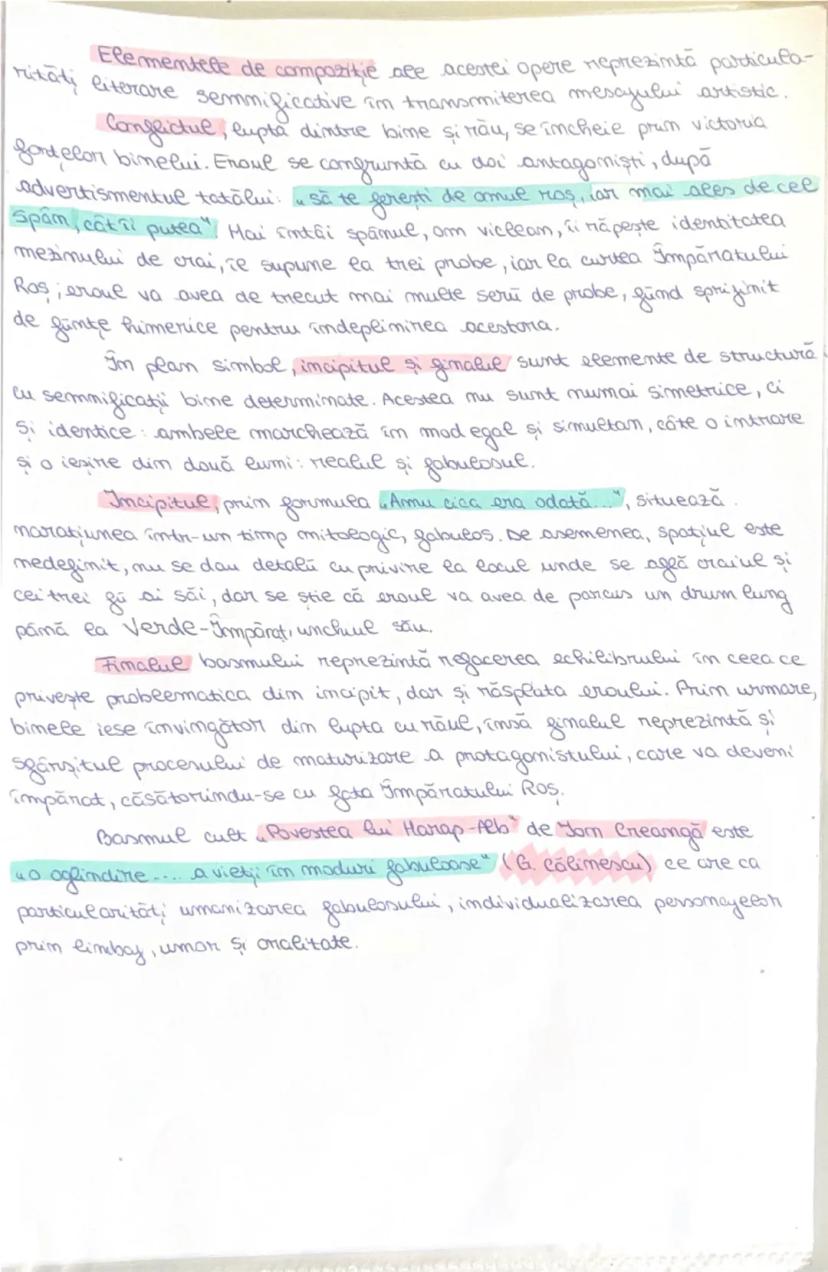 Elementele de compoziție ale acestei opere reprezintă particula-
rități literare semnificative în transmiterea mesajului artistic.
Conflictul, lupta dintre bine și rău, se încheie prin victoria
forțelor binelui. Eroul se confruntă cu doi antagoniști, după
advertismentul tatălui: „să te ferești de omul roș, iar mai ales de cel
spân, cât îi putea". Mai întâi spânul, om viclean, îi răpește identitatea
mezinului de crai, îl supune la trei probe, iar la curtea Împăratului
Roș, eroul va avea de trecut mai multe serii de probe, fiind sprijinit
de ființe himerice pentru îndeplinirea acestora.
În plan simbol, incipitul și finalul sunt elemente de structură
cu semnificații bine determinate. Acestea nu sunt numai simetrice, ci
și identice: ambele marchează în mod egal și simultan, câte o intrare
și o ieșire din două lumi: realul și fabulosul.
Incipitul, prin formula „Amu cica era odată...", situează
narațiunea într-un timp mitologic, fabulos. De asemenea, spațiul este
nedefinit, nu se dau detalii cu privire la locul unde se află craiul și
cei trei fii ai săi, dar se știe că eroul va avea de parcus un drum lung
până la Verde-Împărat, unchiul său.
Finalul basmului reprezintă refacerea echilibrului în ceea ce
privește problematica din incipit, dar și răsplata eroului. Prin urmare,
binele iese învingător din lupta cu răul, însă finalul reprezintă și
sfârșitul procesului de maturizare a protagonistului, care va deveni
împărat, căsătorindu-se cu fata Împăratului Roș.
Basmul cult „Povestea lui Harap-Alb" de Ion Creangă este
„o oglindire.... a vieții în moduri fabuloase" (G. Călinescu) ce are ca
particularități umanizarea fabulosului, individualizarea personajelor
prin limbaj, umor și oralitate.